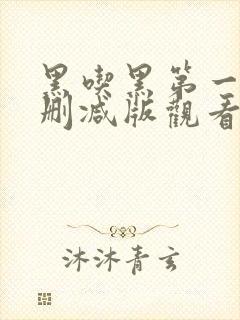 黑喫黑第一
删减版觀看
沐沐青玄